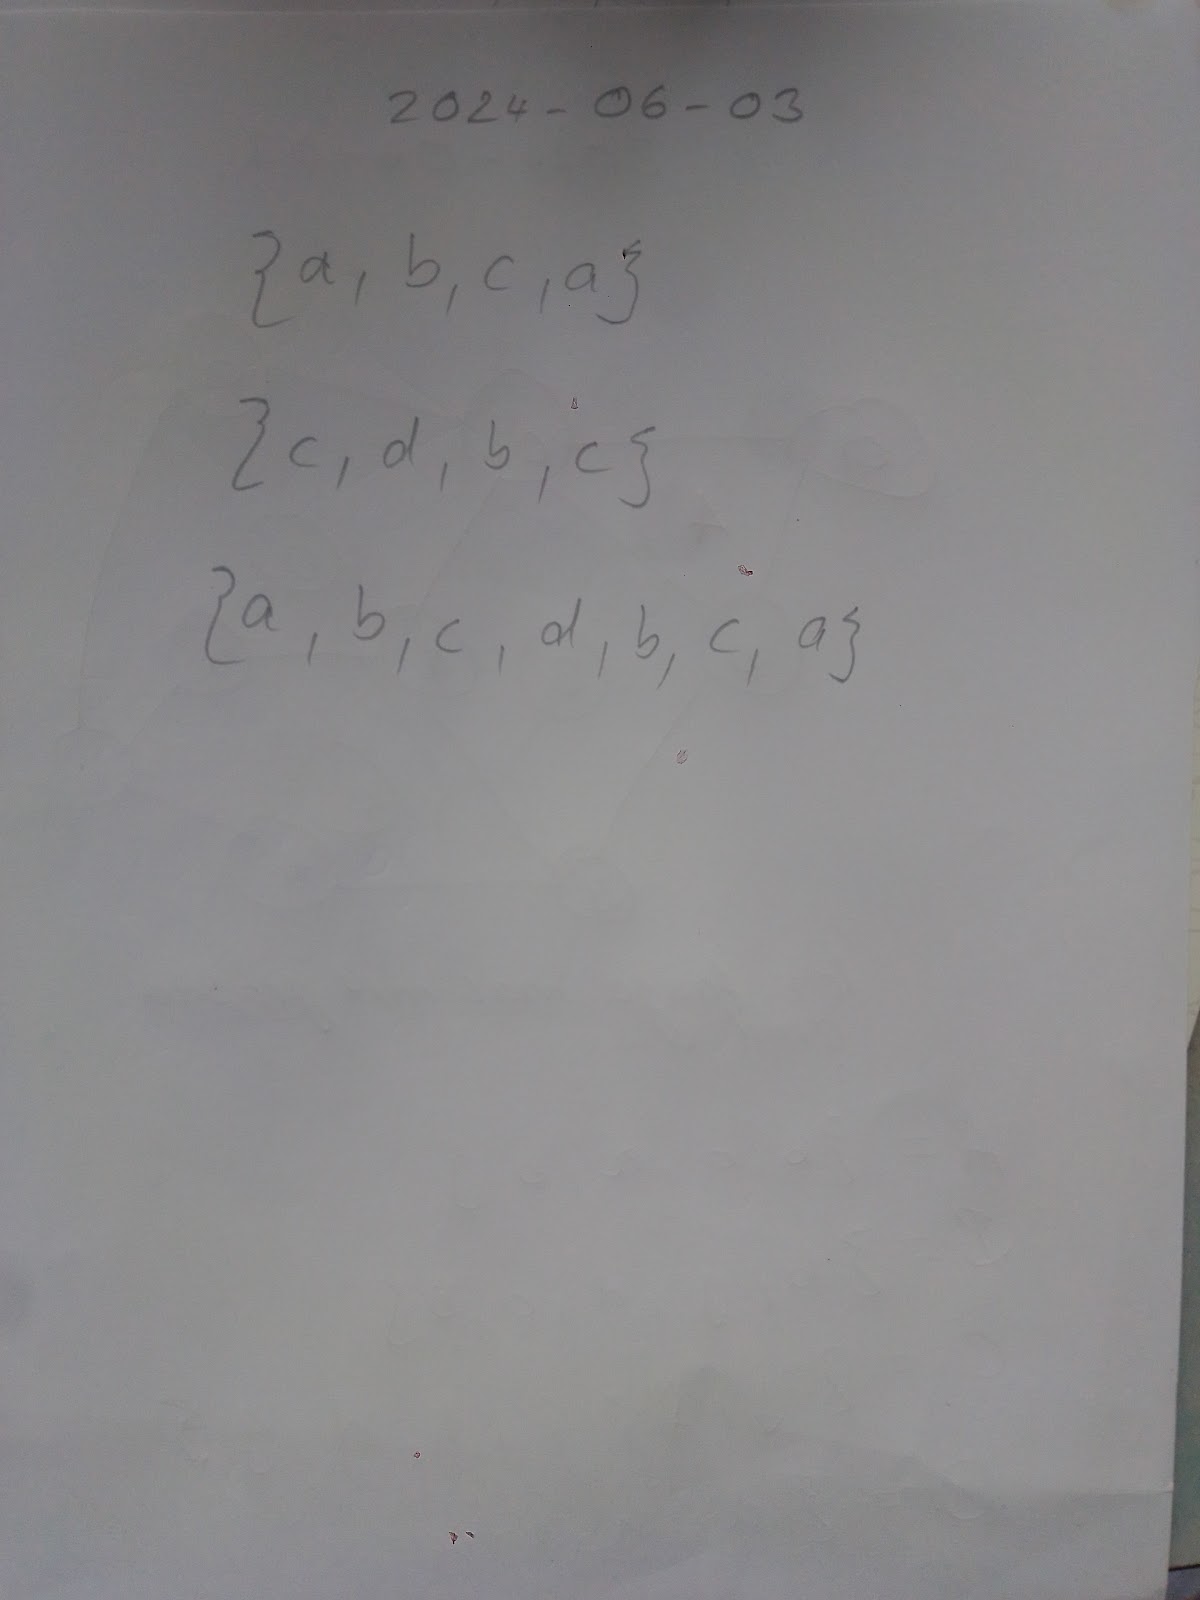 2024-06-03
{a, b, c, a}
{c, d, b, c}
{a, b, c, d, b, c, a}